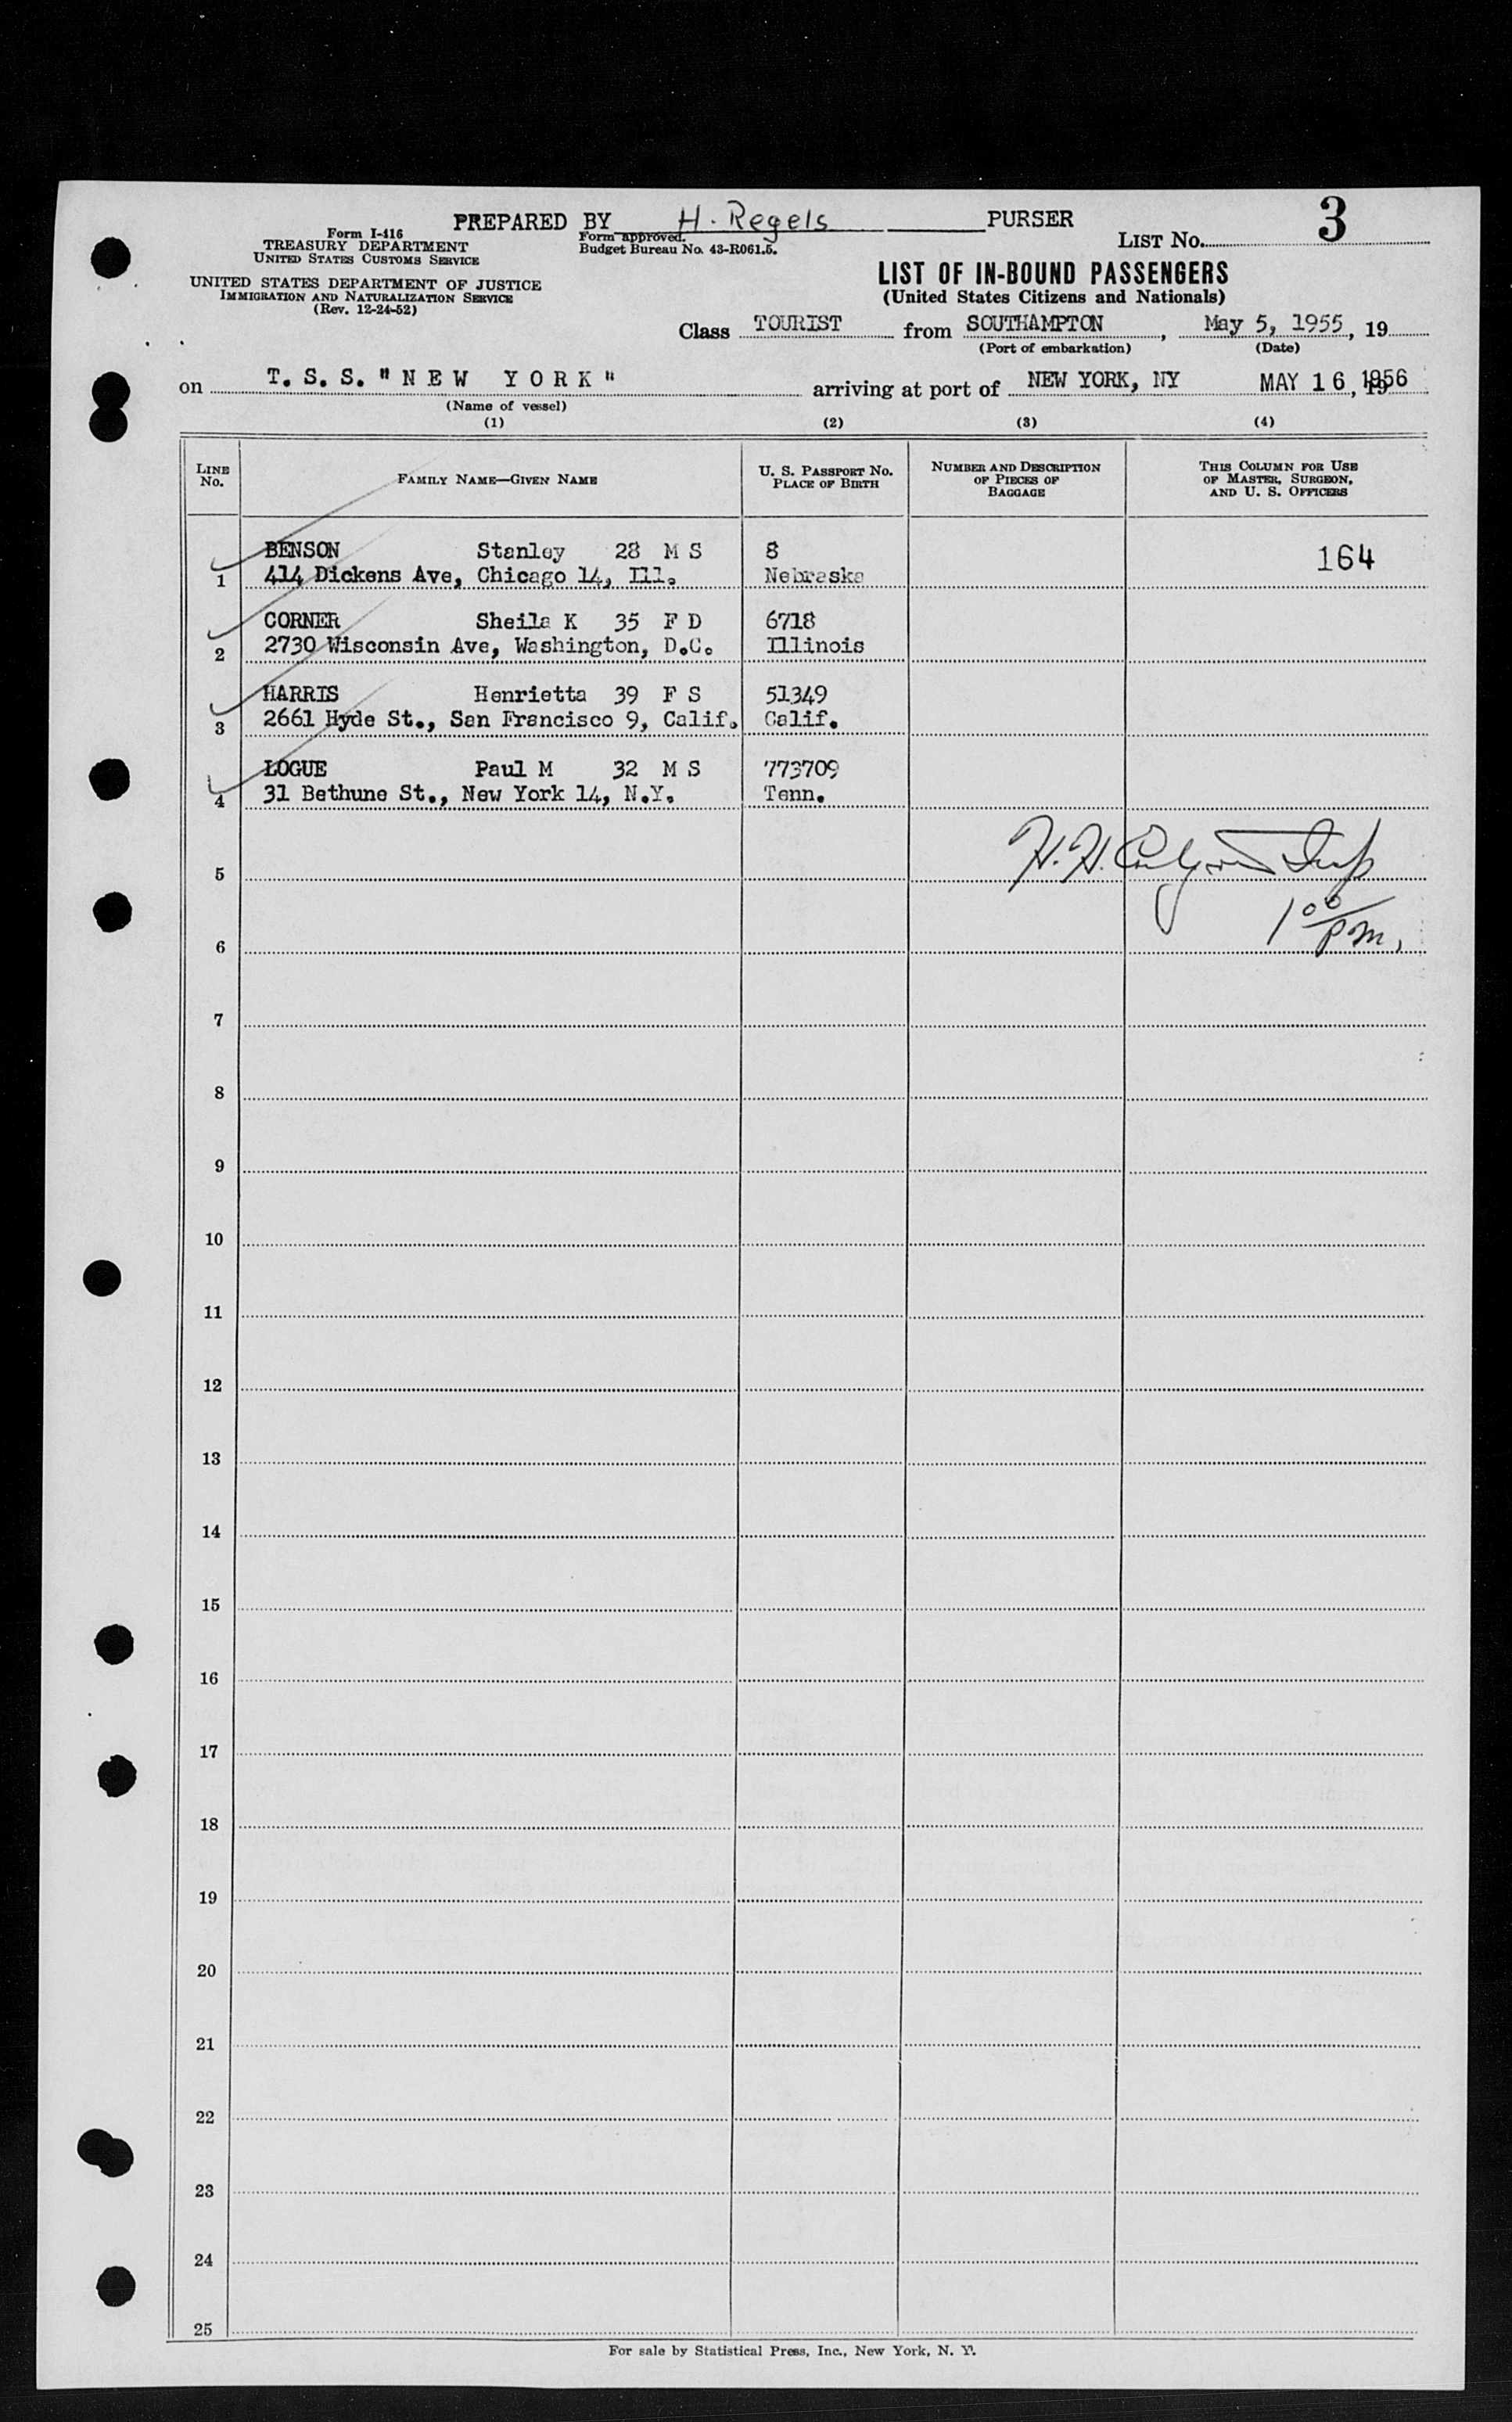 PREPARED BY H. Regels PURSER
Form I-416
TREASURY DEPARTMENT
UNITED STATES CUSTOMS SERVICE
Form approved.
Budget Bureau No. 43-R061.5.
LIST No. 3
UNITED STATES DEPARTMENT OF JUSTICE
IMMIGRATION AND NATURALIZATION SERVICE
(Rev. 12-24-52)
LIST OF IN-BOUND PASSENGERS
(United States Citizens and Nationals)
Class TOURIST from SOUTHAMPTON, May 5, 1955, 19
(Port of embarkation) (Date)
on T. S. S. "NEW YORK" arriving at port of NEW YORK, NY MAY 16, 1956
(Name of vessel)
(1) (2) (3) (4)
LINE No. FAMILY NAME—GIVEN NAME U. S. PASSPORT No. PLACE OF BIRTH NUMBER AND DESCRIPTION OF PIECES OF BAGGAGE THIS COLUMN FOR USE OF MASTER, SURGEON, AND U. S. OFFICERS
BENSON Stanley 28 M S 8 164
1 414 Dickens Ave, Chicago 14, Ill. Nebraska
CORNER Sheila K 35 F D 6718
2 2730 Wisconsin Ave, Washington, D.C. Illinois
HARRIS Henrietta 39 F S 51349
3 2661 Hyde St., San Francisco 9, Calif. Calif.
LOGUE Paul M 32 M S 773709
4 31 Bethune St., New York 14, N.Y. Tenn.
H. H.
5
1 00 pm.
6
7
8
9
10
11
12
13
14
15
16
17
18
19
20
21
22
23
24
25
For sale by Statistical Press, Inc., New York, N. Y.